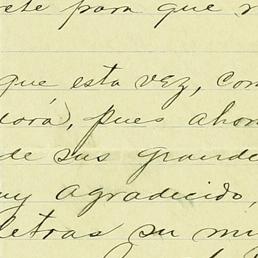 para que
que esta vez, com
dorá, pues ahor
de sus grande
uy agradecido,
letras su mu